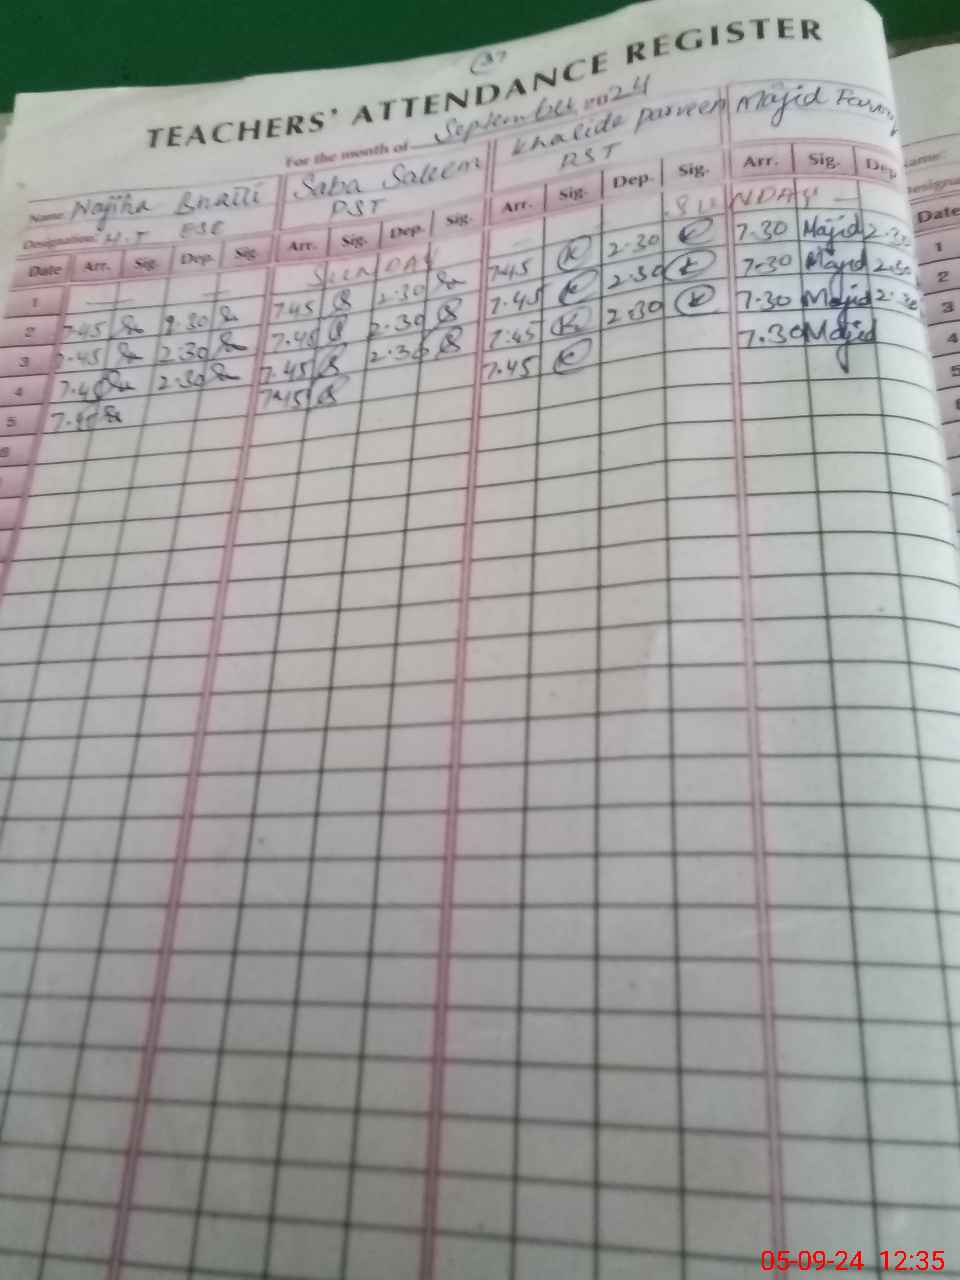 37
TEACHERS' ATTENDANCE REGISTER
For the month of September 2024
Name: Najiha Bhatti Saba Saleem Khalida Parveen Majid
Designation: H.T ESE PST PST
Date Arr. Sig. Dep. Sig. Arr. Sig. Dep. Sig. Arr. Sig. Dep. Sig. Arr. Sig. Dep
1 — — SUNDAY — SUNDAY —
2 7.45 2.30 7.45 2.30 7.45 2.30 7.30 Majid 2.30
3 7.45 2.30 7.45 2.30 7.45 2.30 7.30 Majid 2.30
4 7.45 2.30 7.45 2.30 7.45 2.30 7.30 Majid 2.30
5 7.45 7.45 7.45 7.30 Majid
6
Date
1
2
3
4
5
05-09-24 12:35